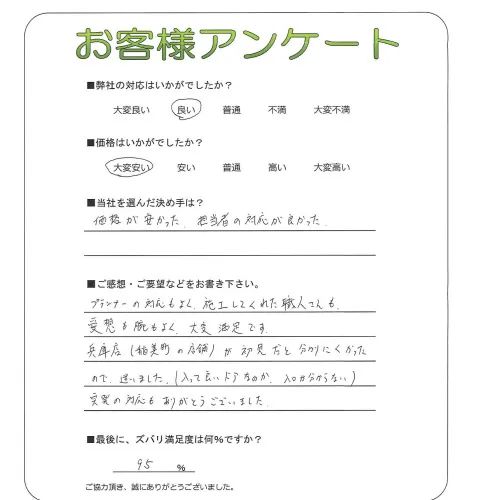 お客様アンケート
■弊社の対応はいかがでしたか？
大変良い 良い 普通 不満 大変不満
■価格はいかがでしたか？
大変安い 安い 普通 高い 大変高い
■当社を選んだ決め手は？
価格が安かった、担当者の対応が良かった。
■ご感想・ご要望などをお書き下さい。
プランナーの対応もよく、施工してくれた職人さんも、
愛想も腕もよく、大変満足です。
兵庫店（稲美町の店舗）が初見だと分かりにくかった
ので、迷いました。（入って良いトコなのか、入口が分からない）
実家の対応もありがとうございました。
■最後に、ズバリ満足度は何%ですか？
95 %
ご協力頂き、誠にありがとうございました。